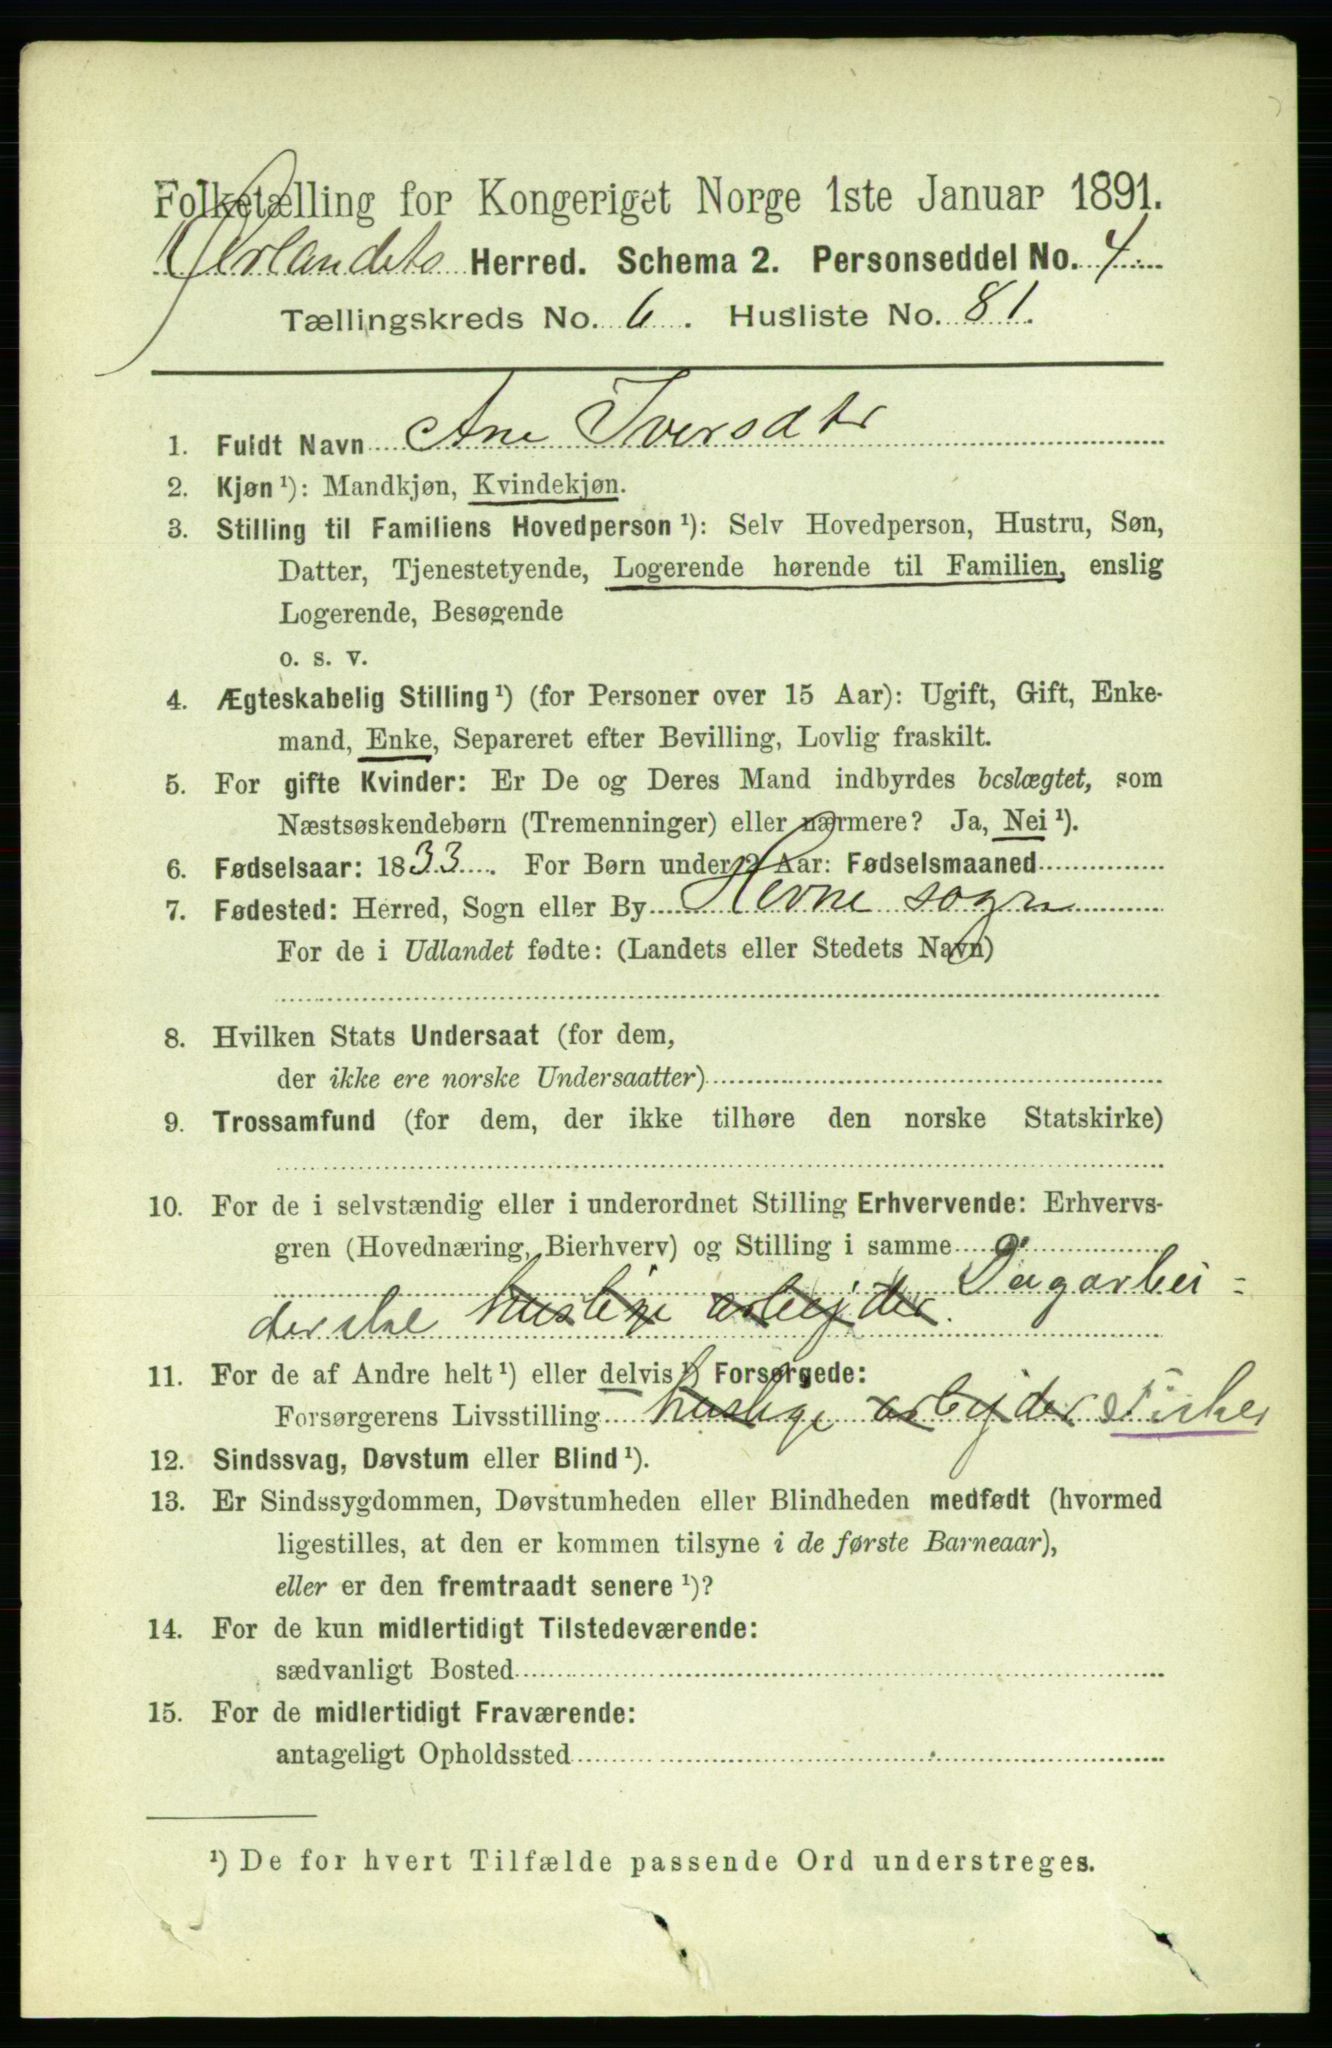 Folketælling for Kongeriget Norge 1ste Januar 1891.
Ørlandets Herred. Schema 2. Personseddel No. 4.
Tællingskreds No. 6. Husliste No. 81.
1. Fuldt Navn Ane Iversdtr
2. Kjøn ¹): Mandkjøn, Kvindekjøn.
3. Stilling til Familiens Hovedperson ¹): Selv Hovedperson, Hustru, Søn,
Datter, Tjenestetyende, Logerende hørende til Familien, enslig
Logerende, Besøgende
o. s. v.
4. Ægteskabelig Stilling ¹) (for Personer over 15 Aar): Ugift, Gift, Enke-
mand, Enke, Separeret efter Bevilling, Lovlig fraskilt.
5. For gifte Kvinder: Er De og Deres Mand indbyrdes beslægtet, som
Næstsøskendebørn (Tremenninger) eller nærmere? Ja, Nei ¹).
6. Fødselsaar: 1833. For Børn under 2 Aar: Fødselsmaaned
7. Fødested: Herred, Sogn eller By Hevne sogn
For de i Udlandet fødte: (Landets eller Stedets Navn)
8. Hvilken Stats Undersaat (for dem,
der ikke ere norske Undersaatter)
9. Trossamfund (for dem, der ikke tilhøre den norske Statskirke)
10. For de i selvstændig eller i underordnet Stilling Erhvervende: Erhvervs-
gren (Hovednæring, Bierhverv) og Stilling i samme
Dagarbei-
derske huslige arbejder.
11. For de af Andre helt ¹) eller delvis ¹) Forsørgede:
Forsørgerens Livsstilling huslige arbejder Fisker
12. Sindssvag, Døvstum eller Blind ¹).
13. Er Sindssygdommen, Døvstumheden eller Blindheden medfødt (hvormed
ligestilles, at den er kommen tilsyne i de første Barneaar),
eller er den fremtraadt senere ¹)?
14. For de kun midlertidigt Tilstedeværende:
sædvanligt Bosted
15. For de midlertidigt Fraværende:
antageligt Opholdssted
¹) De for hvert Tilfælde passende Ord understreges.